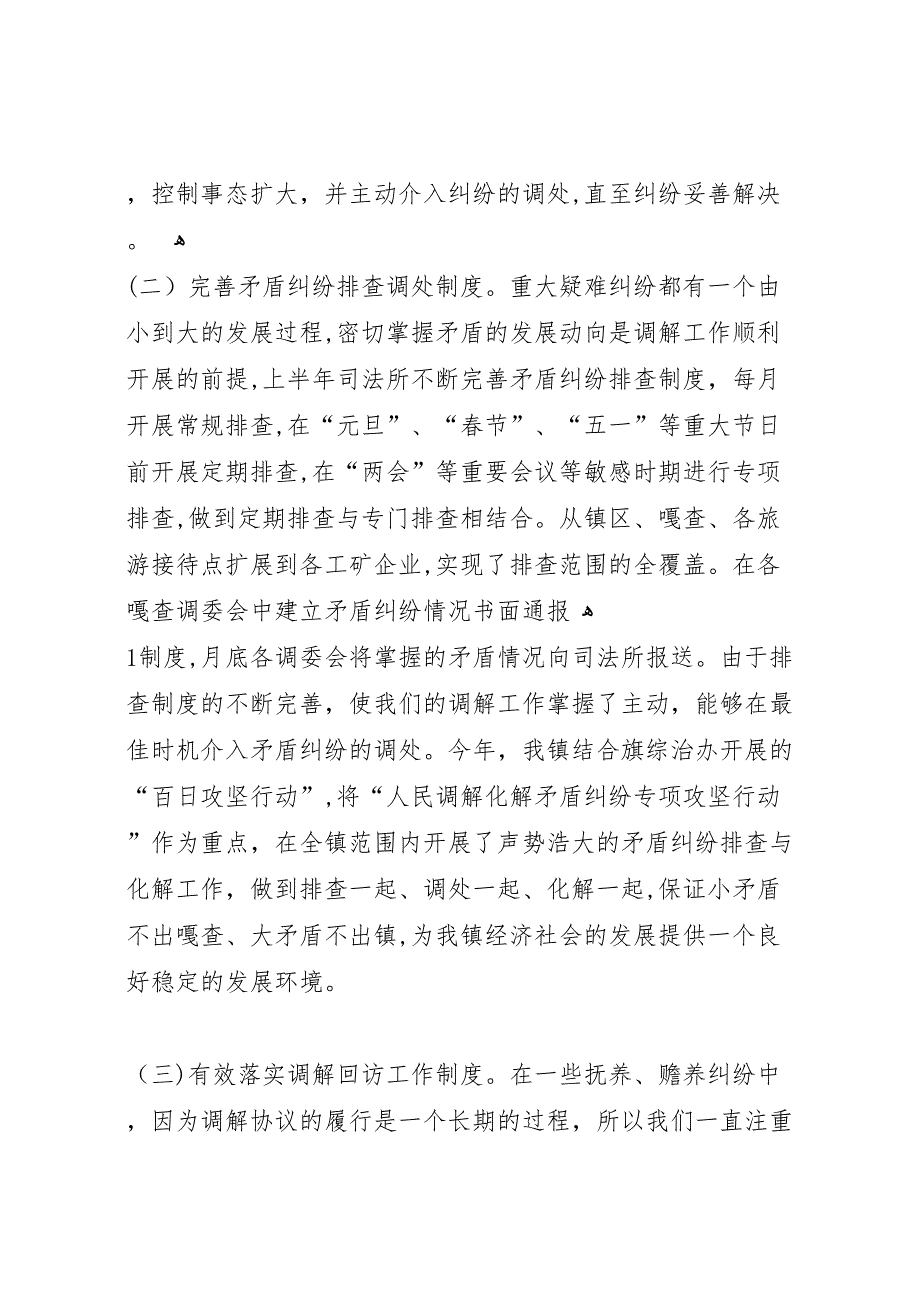 ，控制事态扩大，并主动介入纠纷的调处,直至纠纷妥善解决
。 ﻫ
(二）完善矛盾纠纷排查调处制度。重大疑难纠纷都有一个由
小到大的发展过程,密切掌握矛盾的发展动向是调解工作顺利
开展的前提,上半年司法所不断完善矛盾纠纷排查制度，每月
开展常规排查,在“元旦”、“春节”、“五一”等重大节日
前开展定期排查,在“两会”等重要会议等敏感时期进行专项
排查,做到定期排查与专门排查相结合。从镇区、嘎查、各旅
游接待点扩展到各工矿企业,实现了排查范围的全覆盖。在各
嘎查调委会中建立矛盾纠纷情况书面通报 ﻫ
1制度,月底各调委会将掌握的矛盾情况向司法所报送。由于排
查制度的不断完善，使我们的调解工作掌握了主动，能够在最
佳时机介入矛盾纠纷的调处。今年，我镇结合旗综治办开展的
“百日攻坚行动”,将“人民调解化解矛盾纠纷专项攻坚行动
”作为重点，在全镇范围内开展了声势浩大的矛盾纠纷排查与
化解工作，做到排查一起、调处一起、化解一起,保证小矛盾
不出嘎查、大矛盾不出镇,为我镇经济社会的发展提供一个良
好稳定的发展环境。
（三)有效落实调解回访工作制度。在一些抚养、赡养纠纷中
，因为调解协议的履行是一个长期的过程，所以我们一直注重